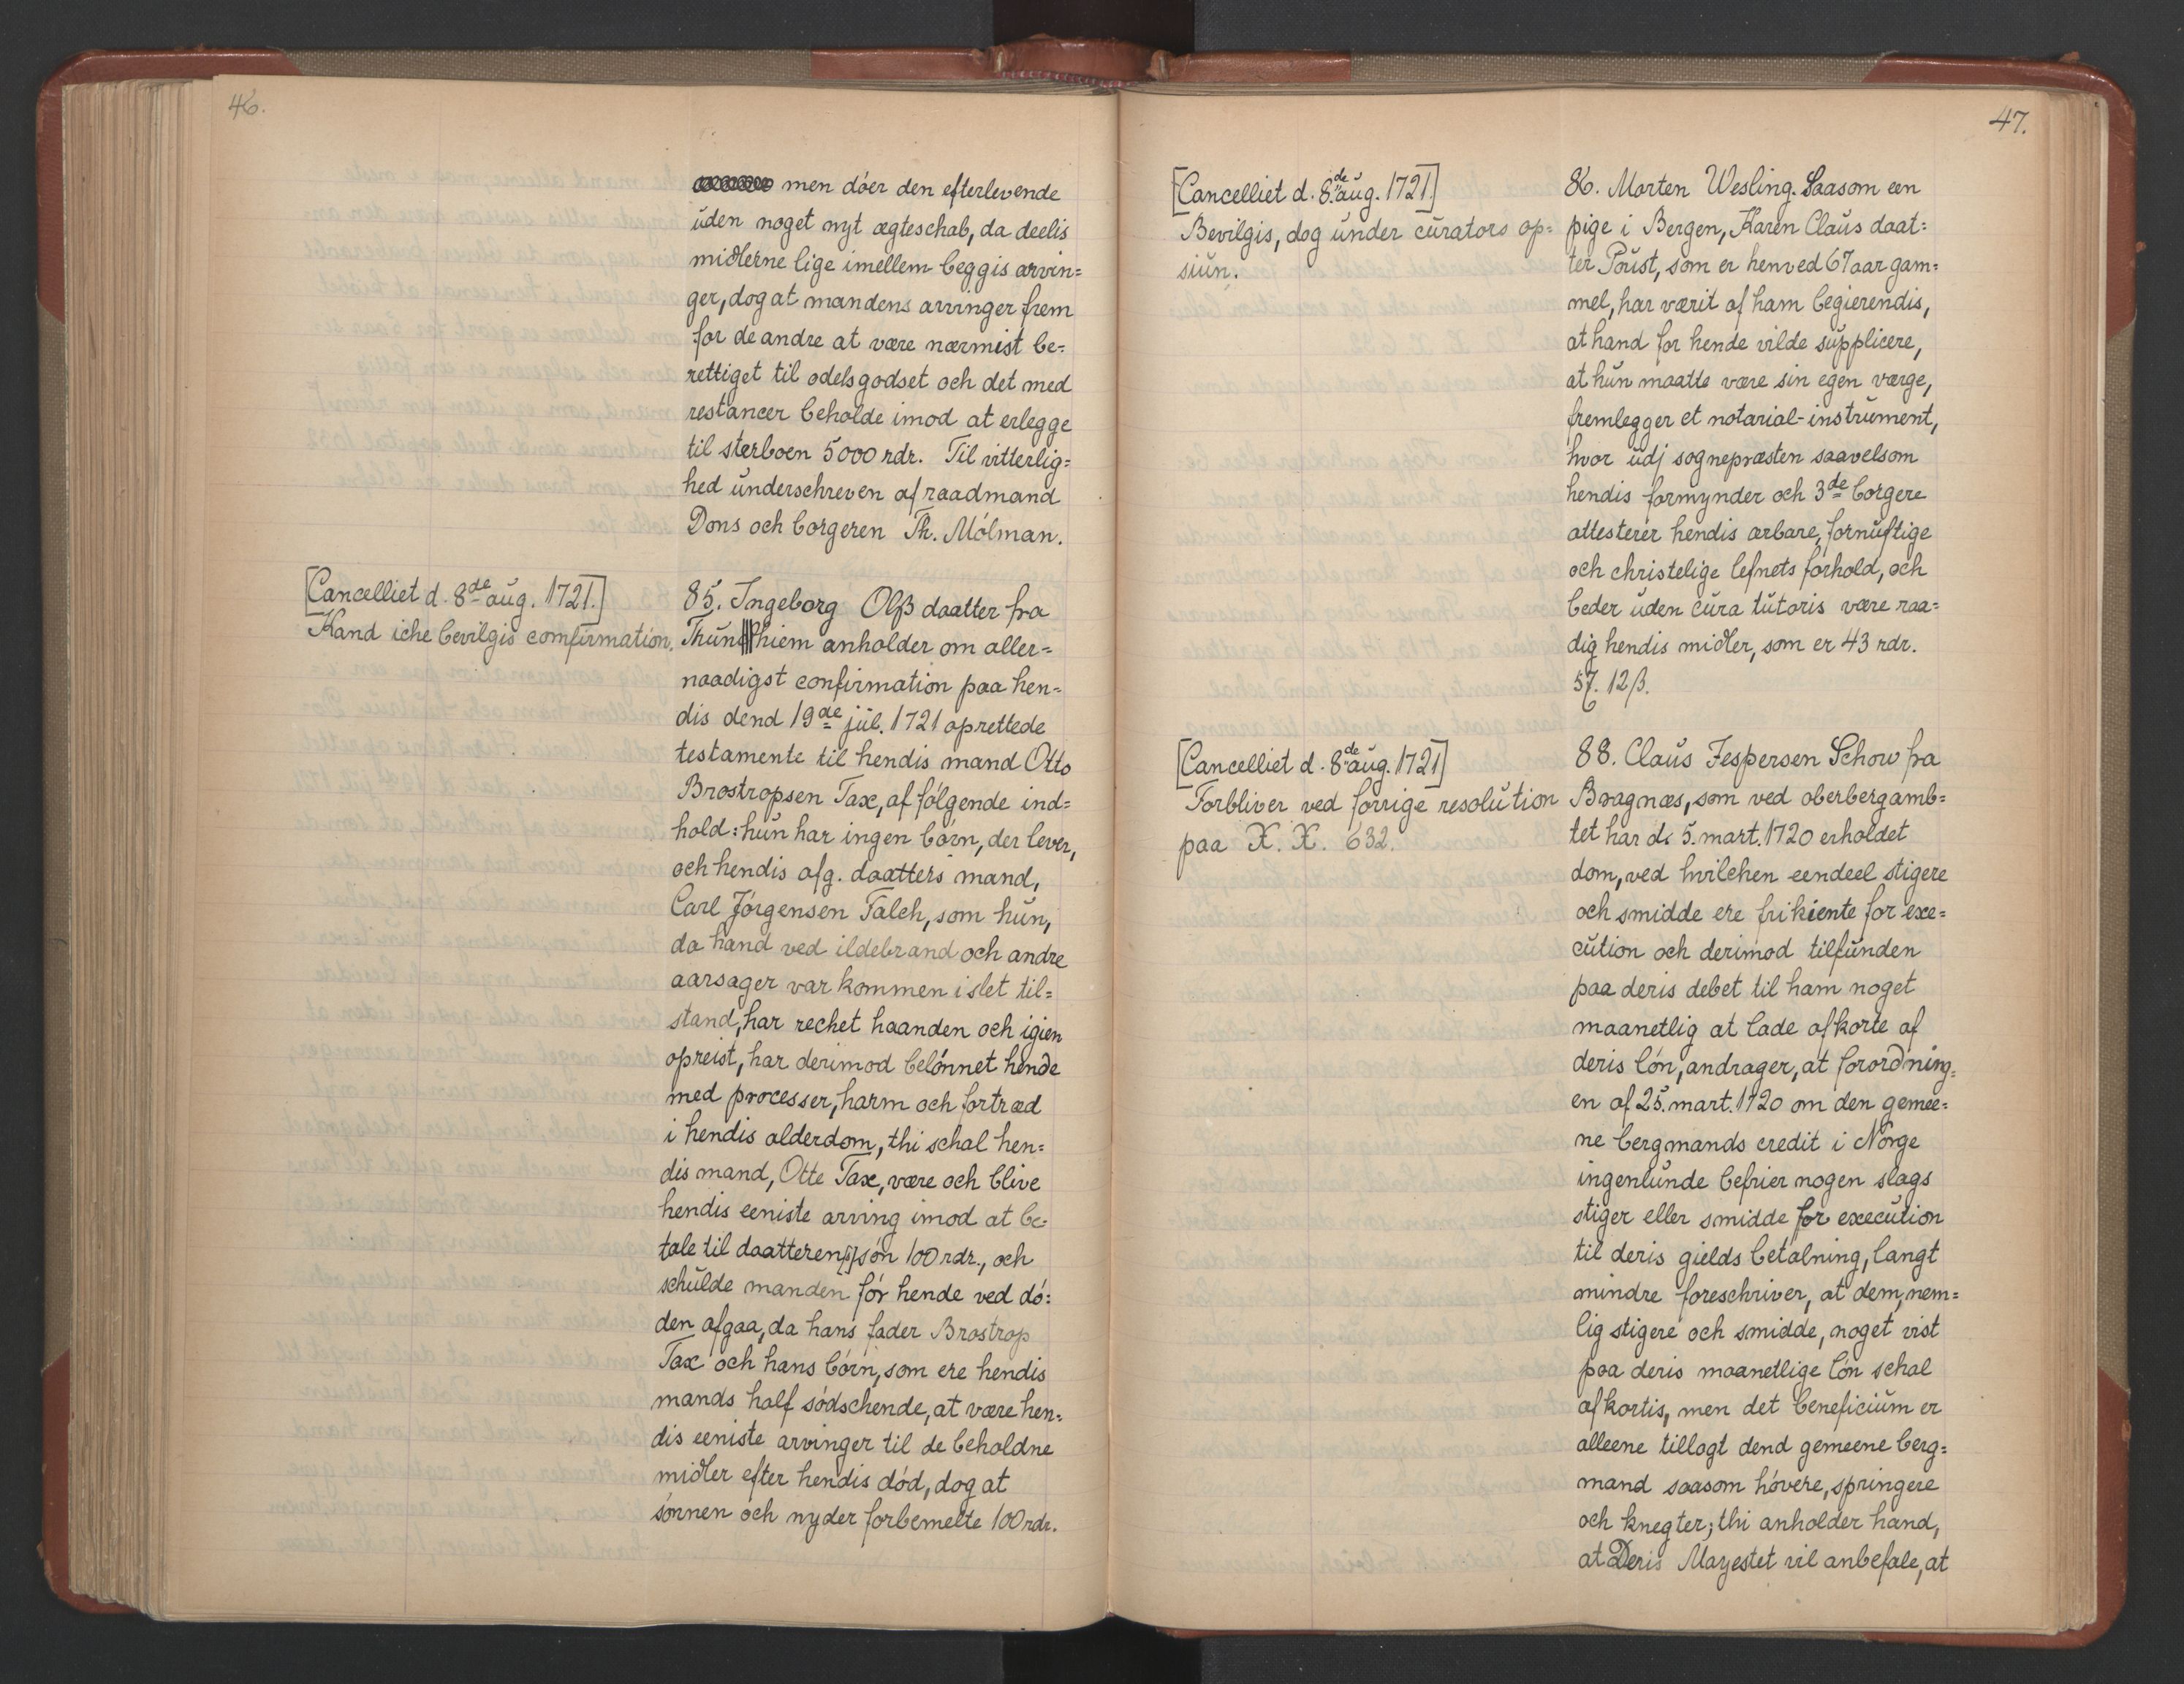 46.
men döer den efterlevende
uden noget nyt ægteschab, da deelis
midlerne lige imellem beggis arvin=
ger, dog at mandens arvinger frem
for de andre at være nærmist be=
rettiget til odelsgodset och det med
restancer beholde imod at erlegge
til sterboen 5000 rdr. Til vitterlig=
hed underschreven af raadmand
Dons och borgeren Th. Mölman.
[Cancelliet d. 8de aug. 1721.]
Kand iche bevilgis comfirmation.
85. Ingeborg Olss daatter fra
Thundhiem anholder om aller=
naadigst confirmation paa hen=
dis dend 19de jul. 1721 oprettede
testamente til hendis mand Otto
Brostropsen Tax, af følgende ind=
hold: hun har ingen börn, der lever,
och hendis afg. daatters mand,
Carl Jörgensen Falch, som hun,
da hand ved ildebrand och andre
aarsager var kommen i slet til=
stand, har rechet haanden och igien
opreist, har derimod belönnet hende
med processer, harm och fortræd
i hendis alderdom, thi schal hen=
dis mand, Otte Tax, være och blive
hendis eeniste arving imod at be=
tale til daatteren[s] sön 100 rdr., och
schulde manden för hende ved dö=
den afgaa, da hans fader Brostrop
Tax och hans börn, som ere hendis
mands half södschende, at være hen=
dis eeniste arvinger til de beholdne
midler efter hendis död, dog at
sönnen och nyder forbemelte 100 rdr.
47.
[Cancelliet d. 8de aug. 1721.]
Bevilgis, dog under curators op=
siun.
86. Morten Wesling. Saasom een
pige i Bergen, Karen Claus daat=
ter Poust, som er henved 67 aar gam=
mel, har værit af ham begierendis,
at hand for hende vilde supplicere,
at hun maatte være sin egen værge,
fremlegger et notarial-instrument,
hvor udj sognepræsten saavelsom
hendis formynder och 3de borgere
attesterer hendis ærbare, fornuftige
och christelige lefnets forhold, och
beder uden cura tutoris være raa=
dig hendis midler, som er 43 rdr.
5¼. 12 β.
[Cancelliet d. 8de aug. 1721]
Forbliver ved forrige resolution
paa X. X. 632.
88. Claus Jespersen Schow fra
Bragnæs, som ved oberbergamb=
tet har d. 5. mart. 1720 erholdet
dom, ved hvilchen eendeel stigere
och smidde ere frikiente for exe=
cution och derimod tilfunden
paa deris debet til ham noget
maanetlig at lade afkorte af
deris lön, andrager, at forordning=
en af 25. mart. 1720 om den gemee=
ne bergmands credit i Norge
ingenlunde befrier nogen slags
stiger eller smidde for execution
til deris gields betalning, langt
mindre foreschriver, at dem, nem=
lig stigere och smidde, noget vist
paa deris maanetlige lön schal
afkortis, men det beneficium er
alleene tillagt dend gemeene berg=
mand saasom hövere, springere
och knegter; thi anholder hand,
at Deris Mayestet vil anbefale, at